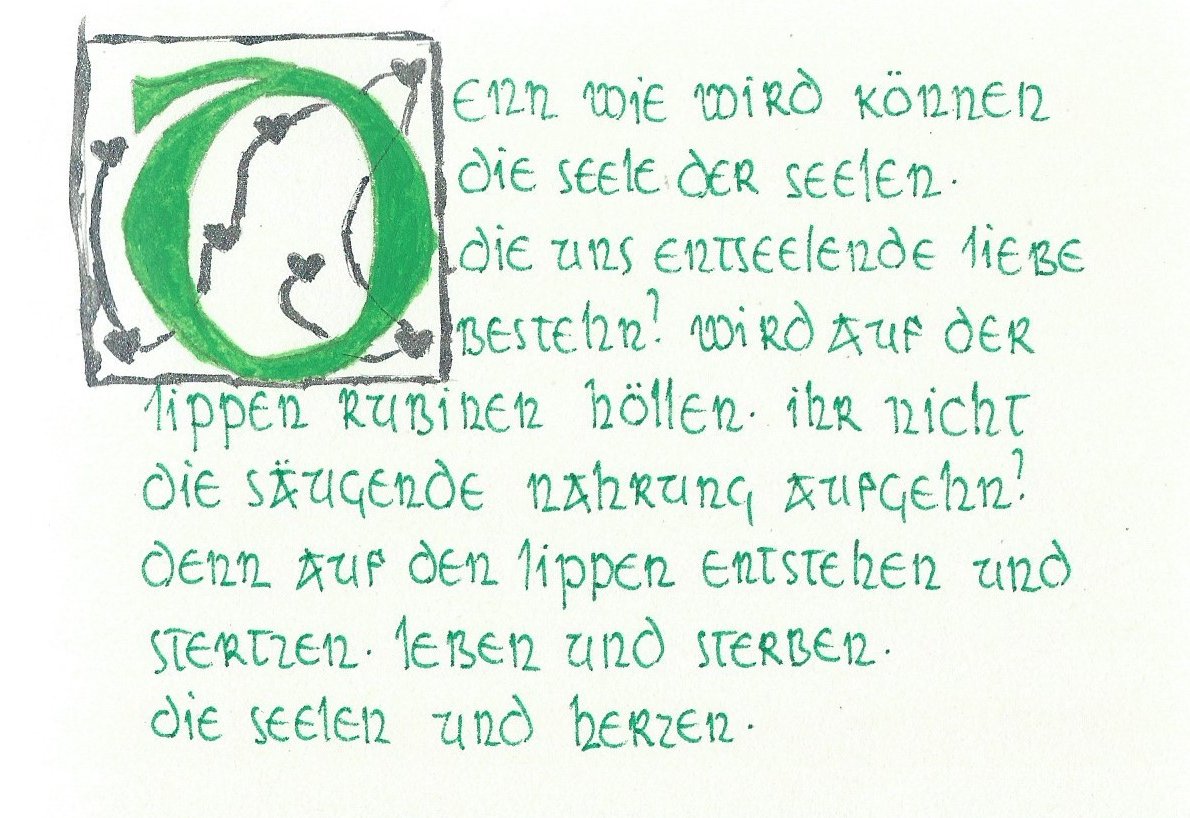 Denn wie wird können
die seele der seelen.
die uns entseelende liebe
bestehn? wird auf der
lippen rubinen höllen. ihr nicht
die säugende nahrung aufgehn?
denn auf den lippen entstehen und
stertzen. leben und sterben.
die seelen und herzen.